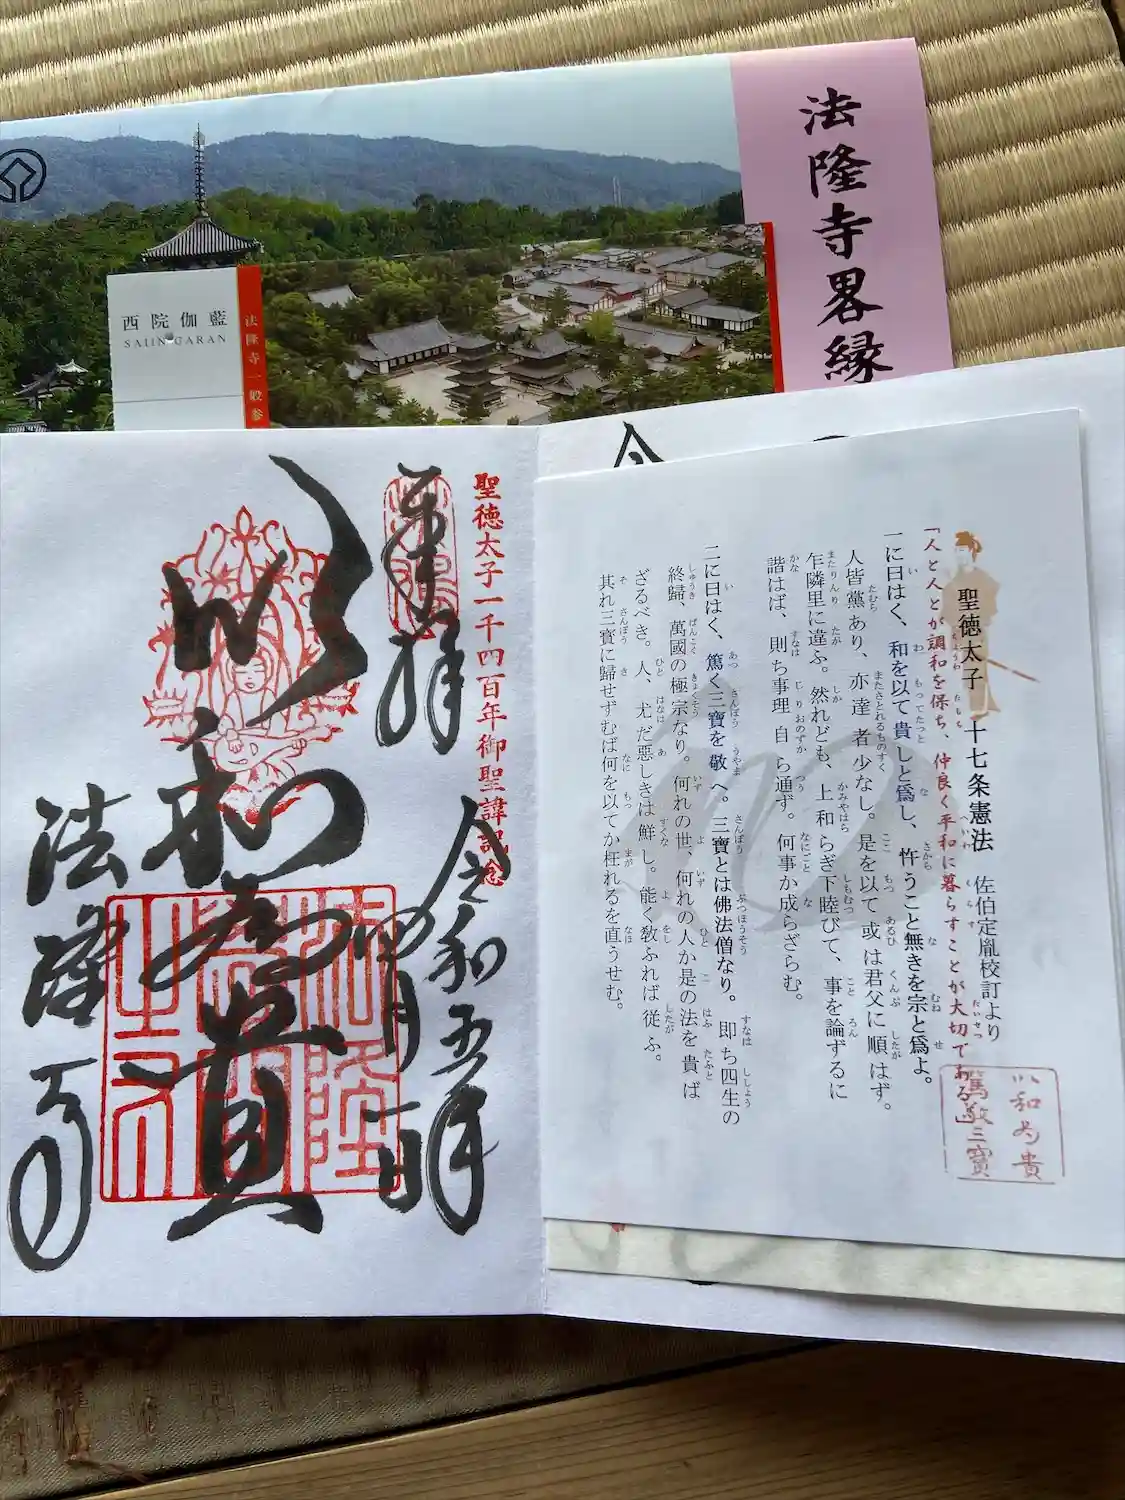 法隆寺畧縁
西院伽藍
SAIIN GARAN
法隆寺一般参
聖徳太子一千四百年御聖諱記念
奉拝
令和五年
四月一日
以和為貴
法隆寺
令
聖徳太子 十七条憲法 佐伯定胤校訂より
「人と人とが調和を保ち、仲良く平和に暮らすことが大切である」
一に曰はく、和を以て貴しと爲し、忤うこと無きを宗と爲よ。
人皆黨あり、亦達者少なし。是を以て或は君父に順はず。
乍隣里に違ふ。然れども、上和らぎ下睦びて、事を論ずるに
諧はば、則ち事理自ら通ず。何事か成らざらむ。
二に曰はく、篤く三寶を敬へ。三寶とは佛法僧なり。即ち四生の
終歸、萬國の極宗なり。何れの世、何れの人か是の法を貴ば
ざるべき。人、尤だ惡しきは鮮し。能く敎ふれば從ふ。
其れ三寳に歸せずむば何を以てか枉れるを直うせむ。
以和為貴
篤敬三寶